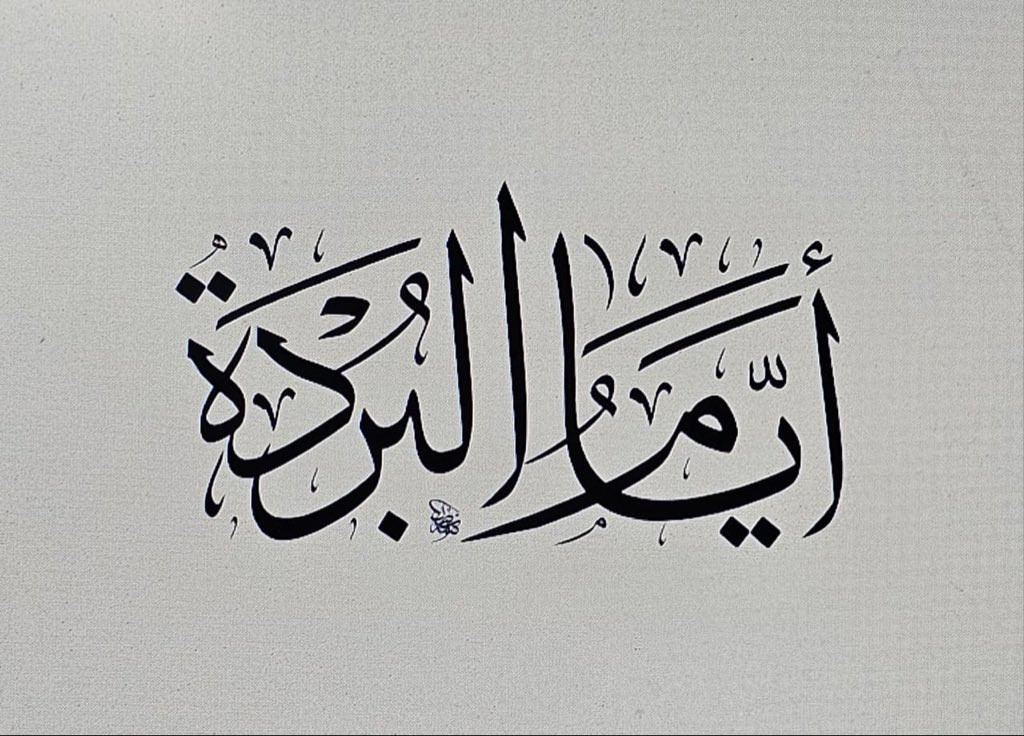 أيّامُ البُردة